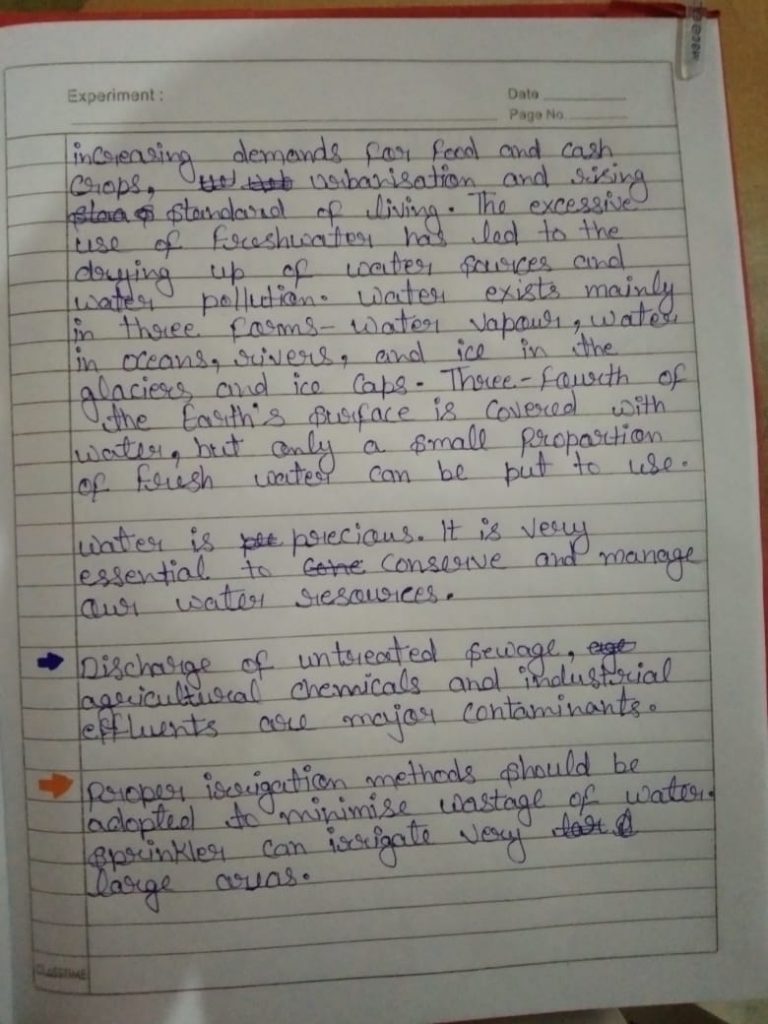 Experiment :
Date
Page No.
increasing demands for food and cash
crops, urbanisation and rising
standard of living. The excessive
use of freshwater has led to the
drying up of water sources and
water pollution. Water exists mainly
in three forms- water vapour, water
in oceans, rivers, and ice in the
glaciers and ice caps. Three-fourth of
the Earth's surface is covered with
water, but only a small proportion
of fresh water can be put to use.
water is precious. It is very
essential to conserve and manage
our water resources.
Discharge of untreated sewage,
agricultural chemicals and industrial
effluents are major contaminants.
Proper irrigation methods should be
adopted to minimise wastage of water.
sprinkler can irrigate very
large areas.
CLASSTIME